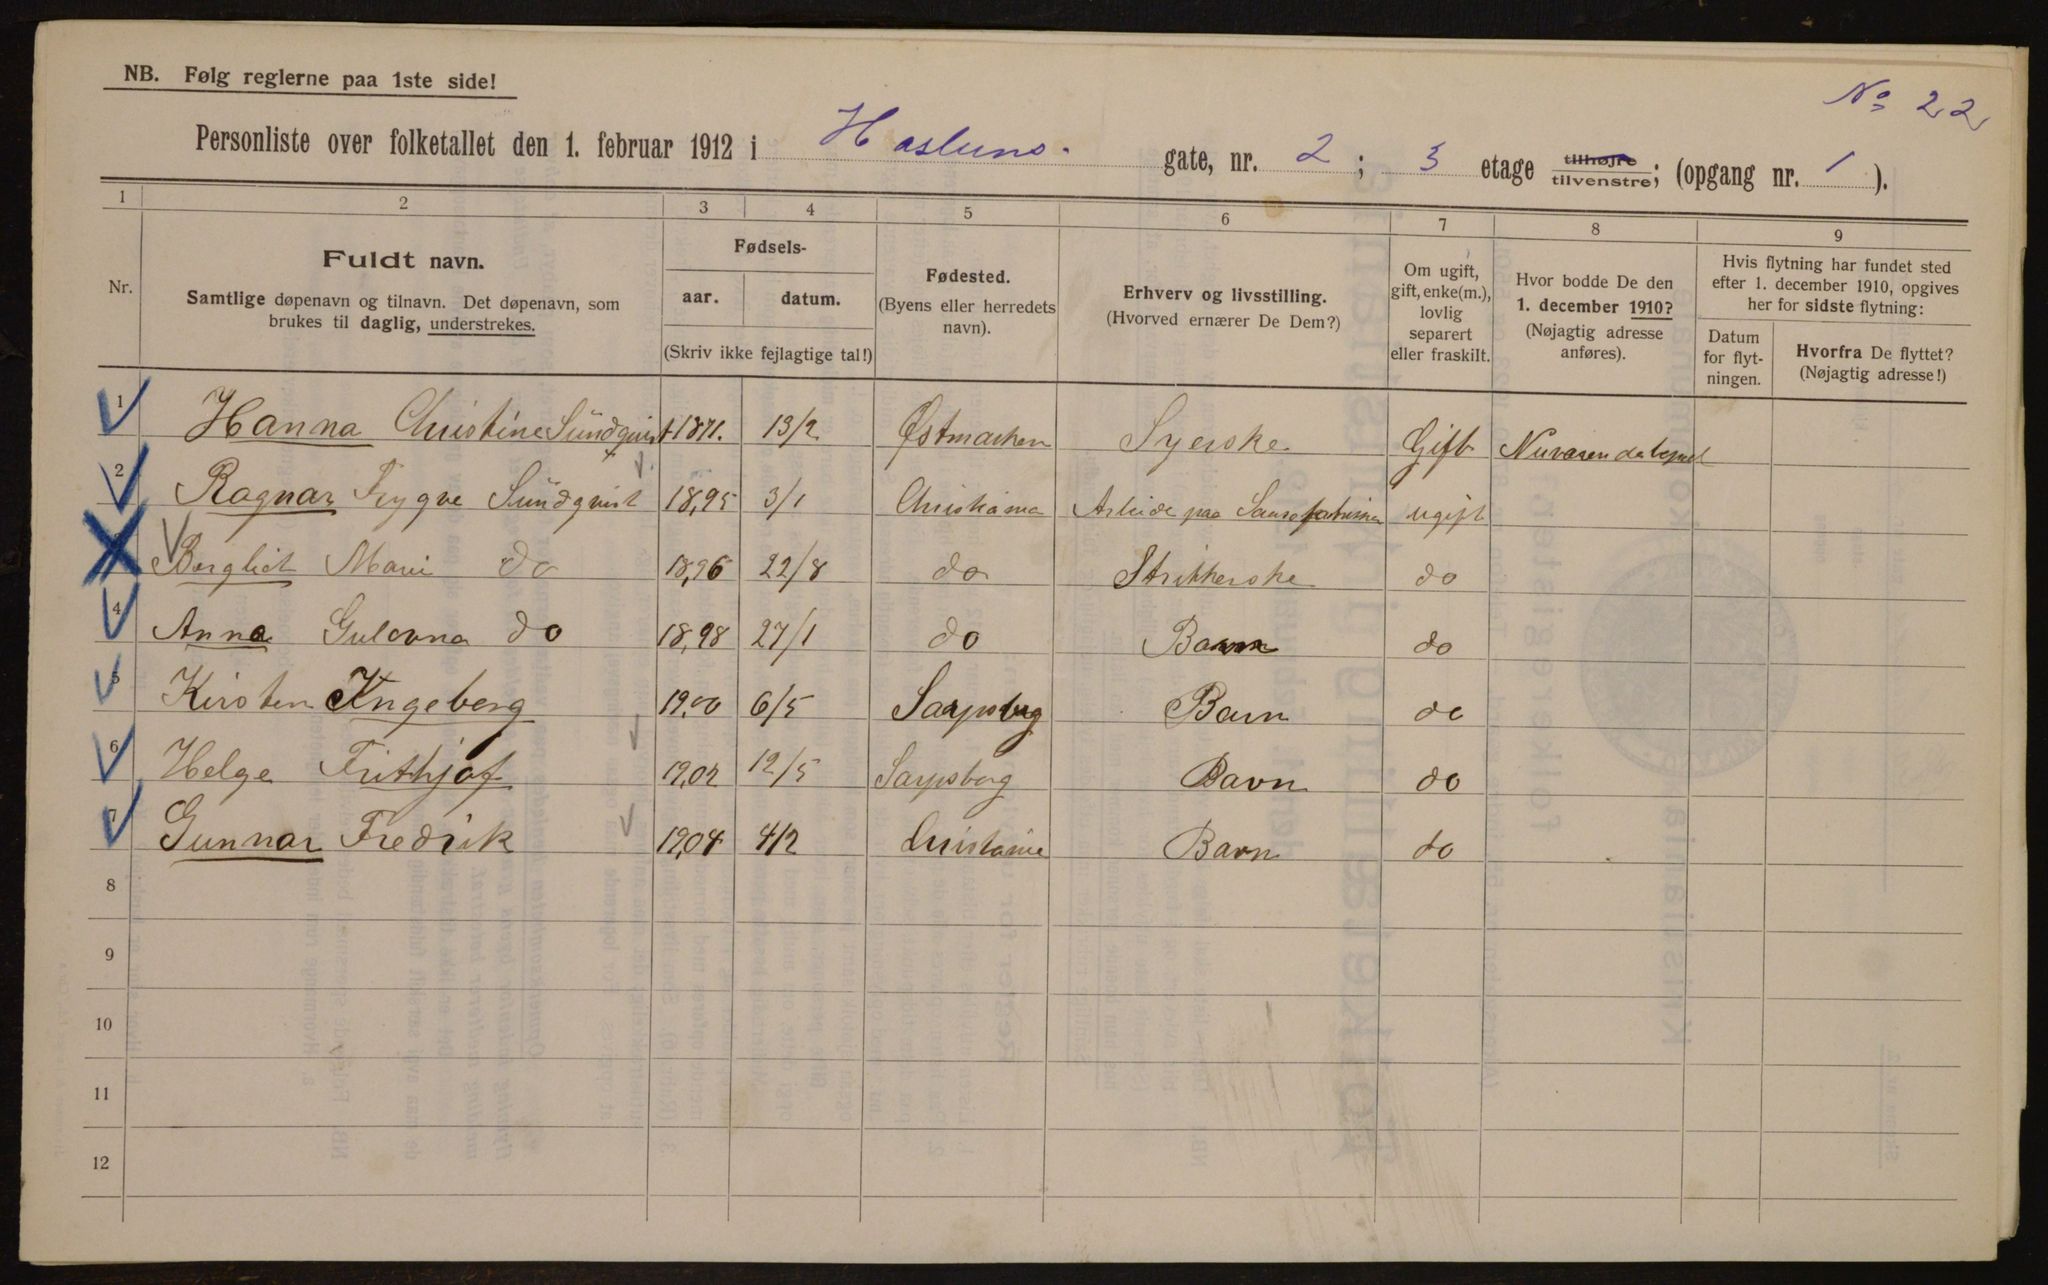 NB. Følg reglerne paa 1ste side!
No 22
Personliste over folketallet den 1. februar 1912 i Hasluns. gate, nr. 2; 3 etage tilhøjre tilvenstre; (opgang nr. 1).
1 2 3 4 5 6 7 8 9
Nr.
Fuldt navn.
Samtlige døpenavn og tilnavn. Det døpenavn, som
brukes til daglig, understrekes.
Fødsels-
aar. datum.
(Skriv ikke fejlagtige tal!)
Fødested.
(Byens eller herredets
navn).
Erhverv og livsstilling.
(Hvorved ernærer De Dem?)
Om ugift,
gift, enke(m.),
lovlig
separert
eller fraskilt.
Hvor bodde De den
1. december 1910?
(Nøjagtig adresse
anføres).
Hvis flytning har fundet sted
efter 1. december 1910, opgives
her for sidste flytning:
Datum
for flyt-
ningen.
Hvorfra De flyttet?
(Nøjagtig adresse!)
1 Hanna Christine Sündqvist 1871. 13/2 Østmarken Syerske Gift
2 Ragnar Trygve Sündqvist 1895 3/1 Christiania Arbeide paa ugift
Borghit Marie do 1896 22/8 do Strikkerske do
4 Anna do 1898 27/1 do Barn do
5 Kirsten Ingeberg 1900 6/5 Sarpsborg Barn do
6 Helge Frithjof 1902 12/5 Sarpsborg Barn do
7 Gunnar Fredrik 1904 4/2 Christania Barn do
8
9
10
11
12